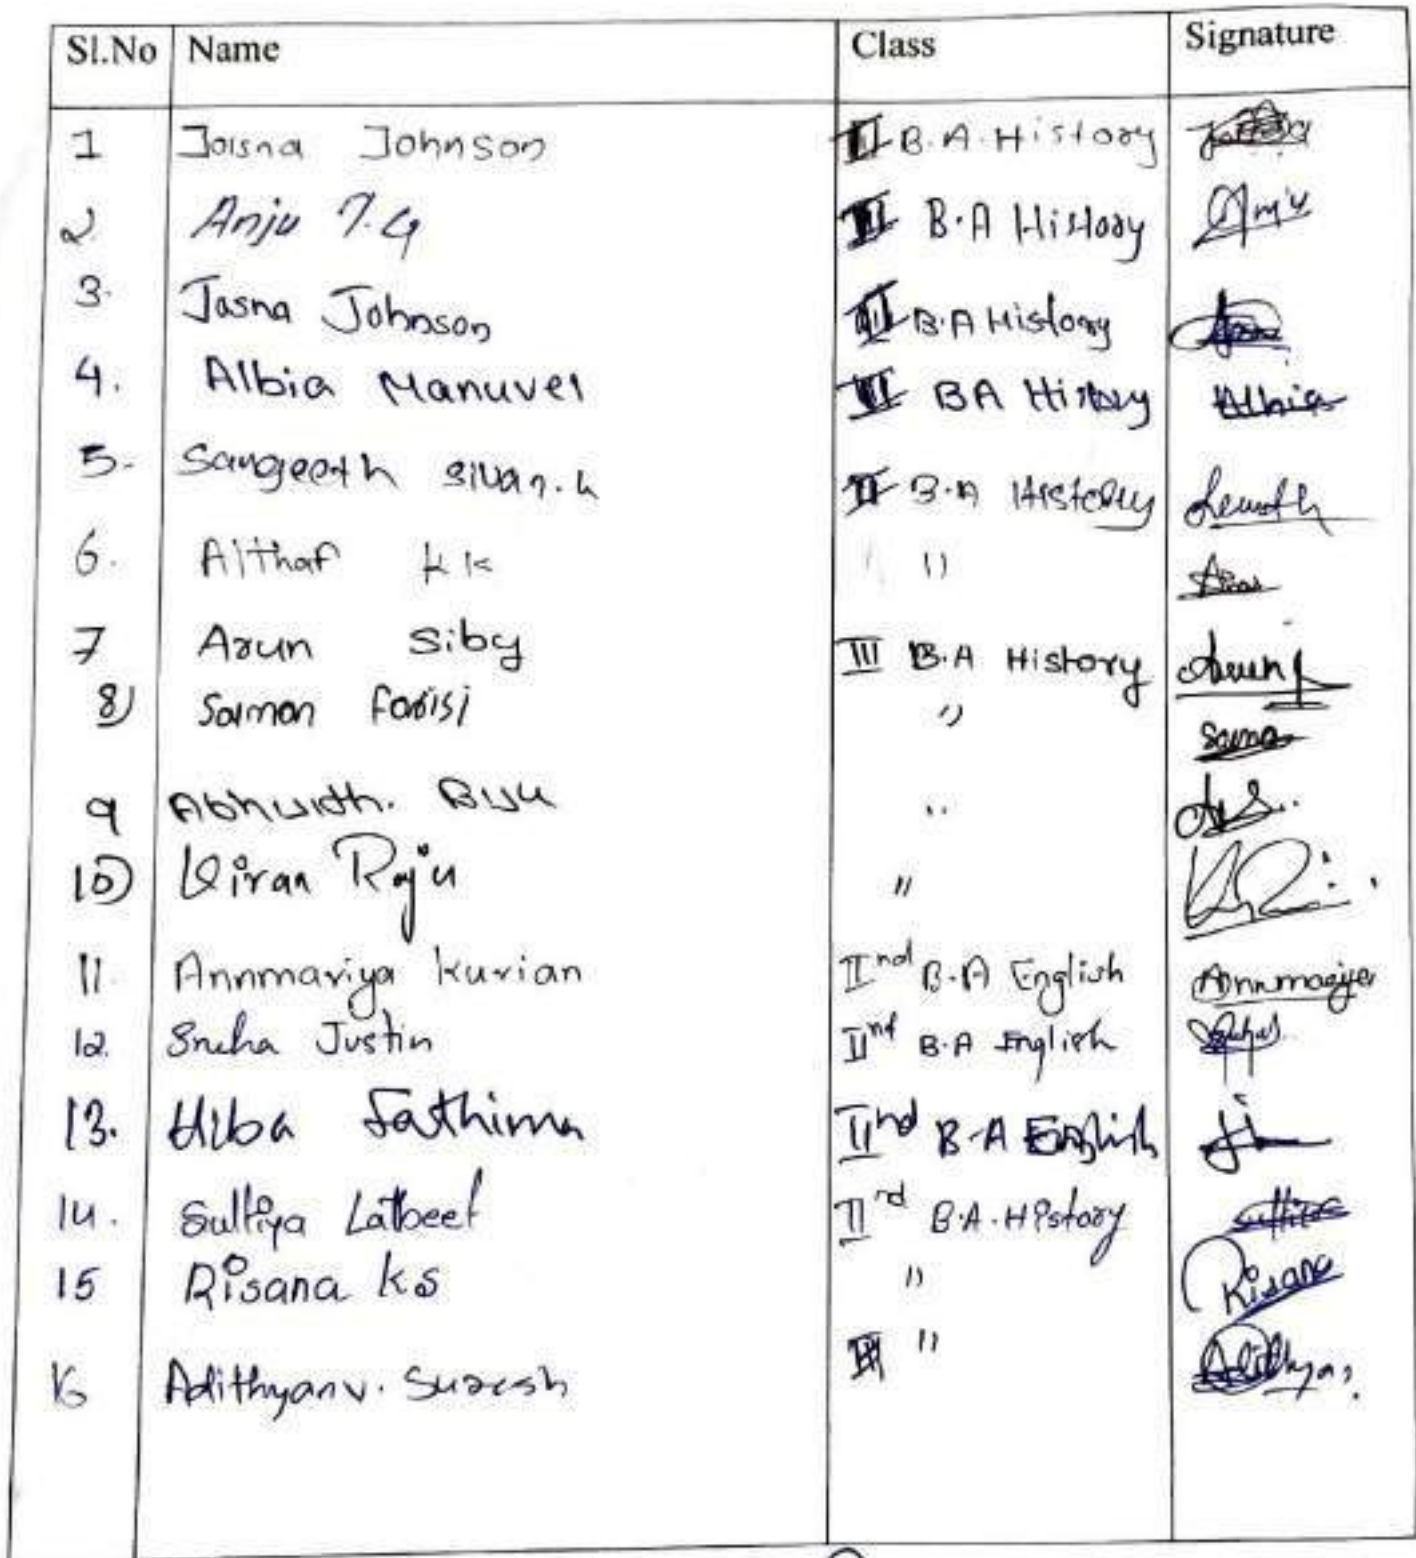 Sl.No Name Class Signature
1 Joisna Johnson II B.A. History
2. Anju T.G II B.A History Anju
3. Jasna Johnson II B.A History
4. Albia Manuvel II BA History Albia
5. Sangeeth Sivan.k II B.A History
6. Althaf KK "
7 Arun Siby III B.A History Arun
8) Salman Farisi "
9 Biju "
10) Kiran Raju "
11. Annmariya Kurian II nd B.A English Annmariya
12. Sneha Justin II nd B.A English Sneha
13. Hiba Fathima II nd B.A English
14. Sulfiya Latheef II rd B.A. History Sulfiya
15 Risana KS " Risana
16 Adithyan v. Suresh III " Adithyan